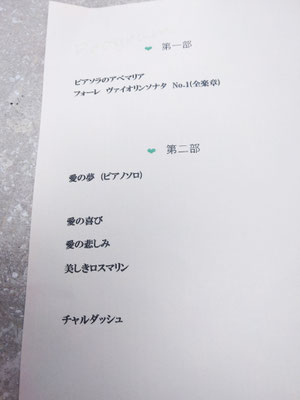 ❤ 第一部
ピアソラのアベマリア
フォーレ ヴァイオリンソナタ No.1(全楽章)
❤ 第二部
愛の夢 (ピアノソロ)
愛の喜び
愛の悲しみ
美しきロスマリン
チャルダッシュ